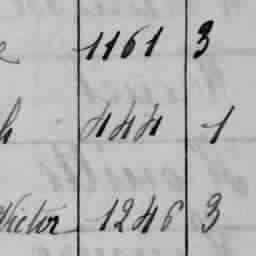 e 1161 3
h 444 1
Victor 1246 3